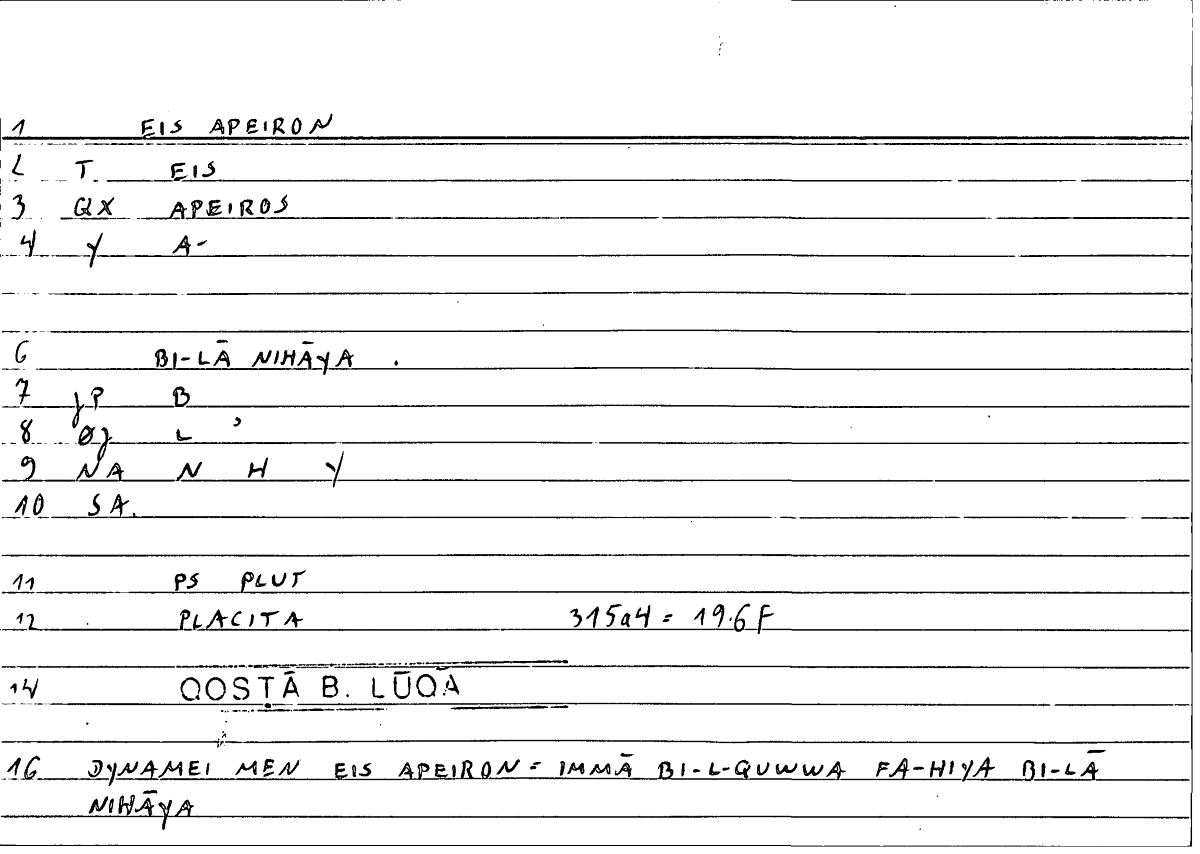 1 EIS APEIRON
2 T. EIS
3 QX APEIROS
4 Y A-
6 BI-LĀ NIHĀYA .
7 JP B
8 ØJ L ʾ
9 NA N H Y
10 SA.
11 PS PLUT
12 PLACITA 315a4 = 19.6 F
14 QOSṬĀ B. LŪQĀ
16 DYNAMEI MEN EIS APEIRON = IMMĀ BI-L-QUWWA FA-HIYA BI-LĀ
NIHĀYA